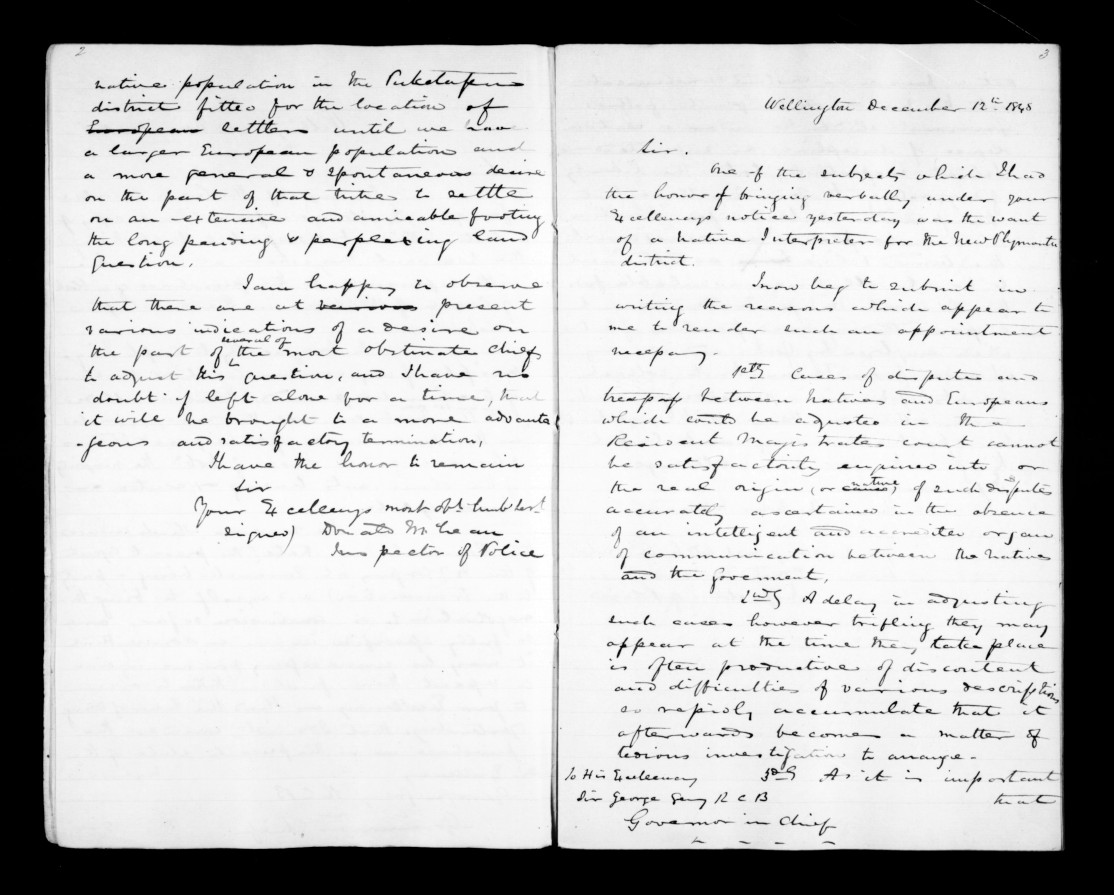 2
native population in the Puketapu
district fitted for the location of
European settlers until we have
a larger European population and
a more general & spontaneous desire
on the part of that tribe to settle
on an extensive and amicable footing
the long pending & perplexing land
question.
I am happy to observe
that there are at various present
various indications of a desire on
the part of several of the most obstinate chiefs
to adjust this question, and I have no
doubt if left alone for a time, that
it will be brought to a more advanta
-geous and satisfactory termination.
I have the honor to remain
Sir
Your Excellencys most obt. humb sert
signed) Donald McLean
Inspector of Police
3
Wellington December 12th 1848
Sir.
One of the subjects which I had
the honor of bringing verbally under your
Excellencys notice yesterday, was the want
of a Native Interpreter for the New Plymouth
district.
I now beg to submit in
writing the reasons which appear to
me to render such an appointment
necessary.
1stly Cases of disputes and
trespass between Natives and Europeans
which could be adjusted in the
Resident Magistrates court cannot
be satisfactorily enquired into or
the real origin, or cause, native of such disputes
accurately ascertained in the absence
of an inteligent and accredited organ
of communication between the natives
and the Goverment,
2ndly A delay in adjusting
such cases however trifling they may
appear at the time they take place
is often productive of discontent
and difficulties of various descriptions
so rapidly accumulate that it
afterwards becomes a matter of
tedious investigation to arrange.
3rdly As it is important
that
To His Excellency
Sir George Grey K C B
Governor in Chief